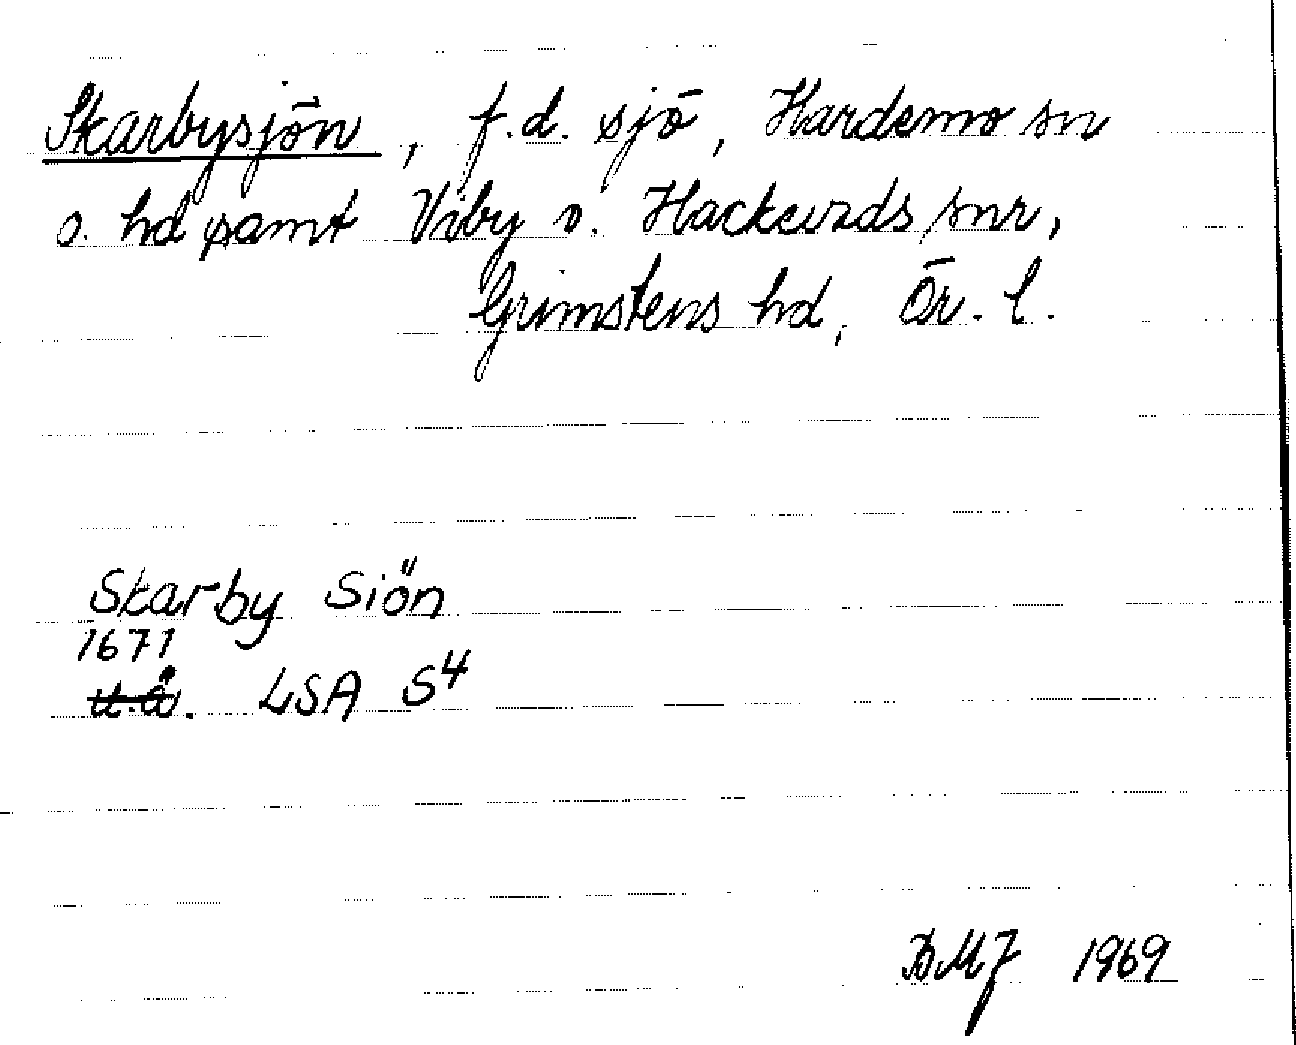 Skarbysjön, f.d. sjö, Hardemo sn
o. hd samt Viby o. Hackvads snr,
Grimstens hd, Ör. l.
Skarby Siön
1671
u.å. LSA S4
BMJ 1969